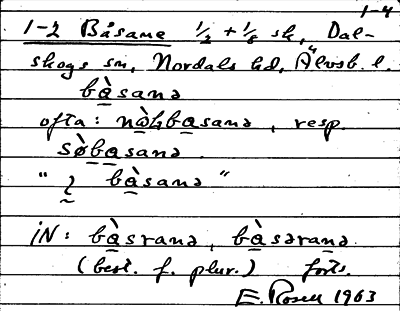 1-4
1-2 Båsarne 1/2 + 1/8 sk, Dal-
skogs sn, Nordals hd, Älvsb. l.
bàsanə
ofta: nòlbasanə, resp.
sø̀basanə.
" bàsanə "
iN: bàsranə, bàsəranə.
(best. f. plur.) forts.
E. Rosell 1963